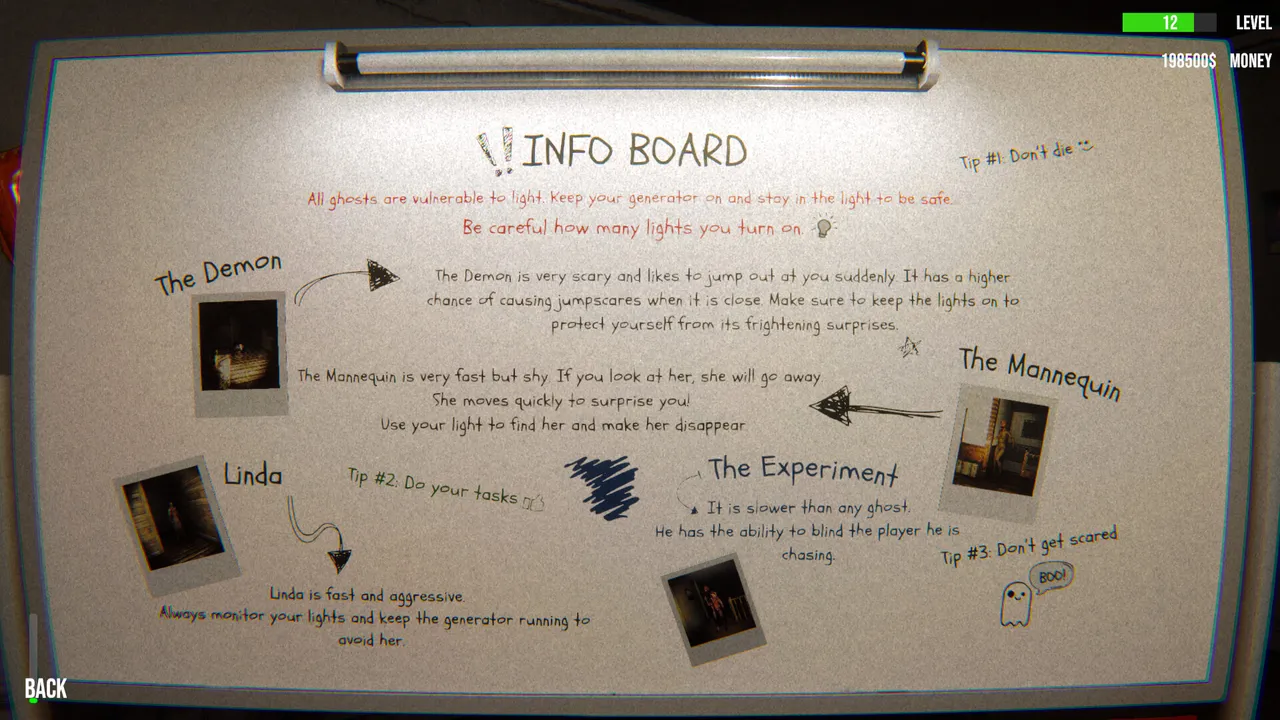 12 LEVEL
198500$ MONEY
!! INFO BOARD
Tip #1: Don't die
All ghosts are vulnerable to light. Keep your generator on and stay in the light to be safe.
Be careful how many lights you turn on.
The Demon
The Demon is very scary and likes to jump out at you suddenly. It has a higher
chance of causing jumpscares when it is close. Make sure to keep the lights on to
protect yourself from its frightening surprises.
The Mannequin
The Mannequin is very fast but shy. If you look at her, she will go away
She moves quickly to surprise you!
Use your light to find her and make her disappear
Linda
Tip #2: Do your tasks
Linda is fast and aggressive.
Always monitor your lights and keep the generator running to
avoid her.
The Experiment
It is slower than any ghost.
He has the ability to blind the player he is
chasing.
Tip #3: Don't get scared
BOO!
BACK